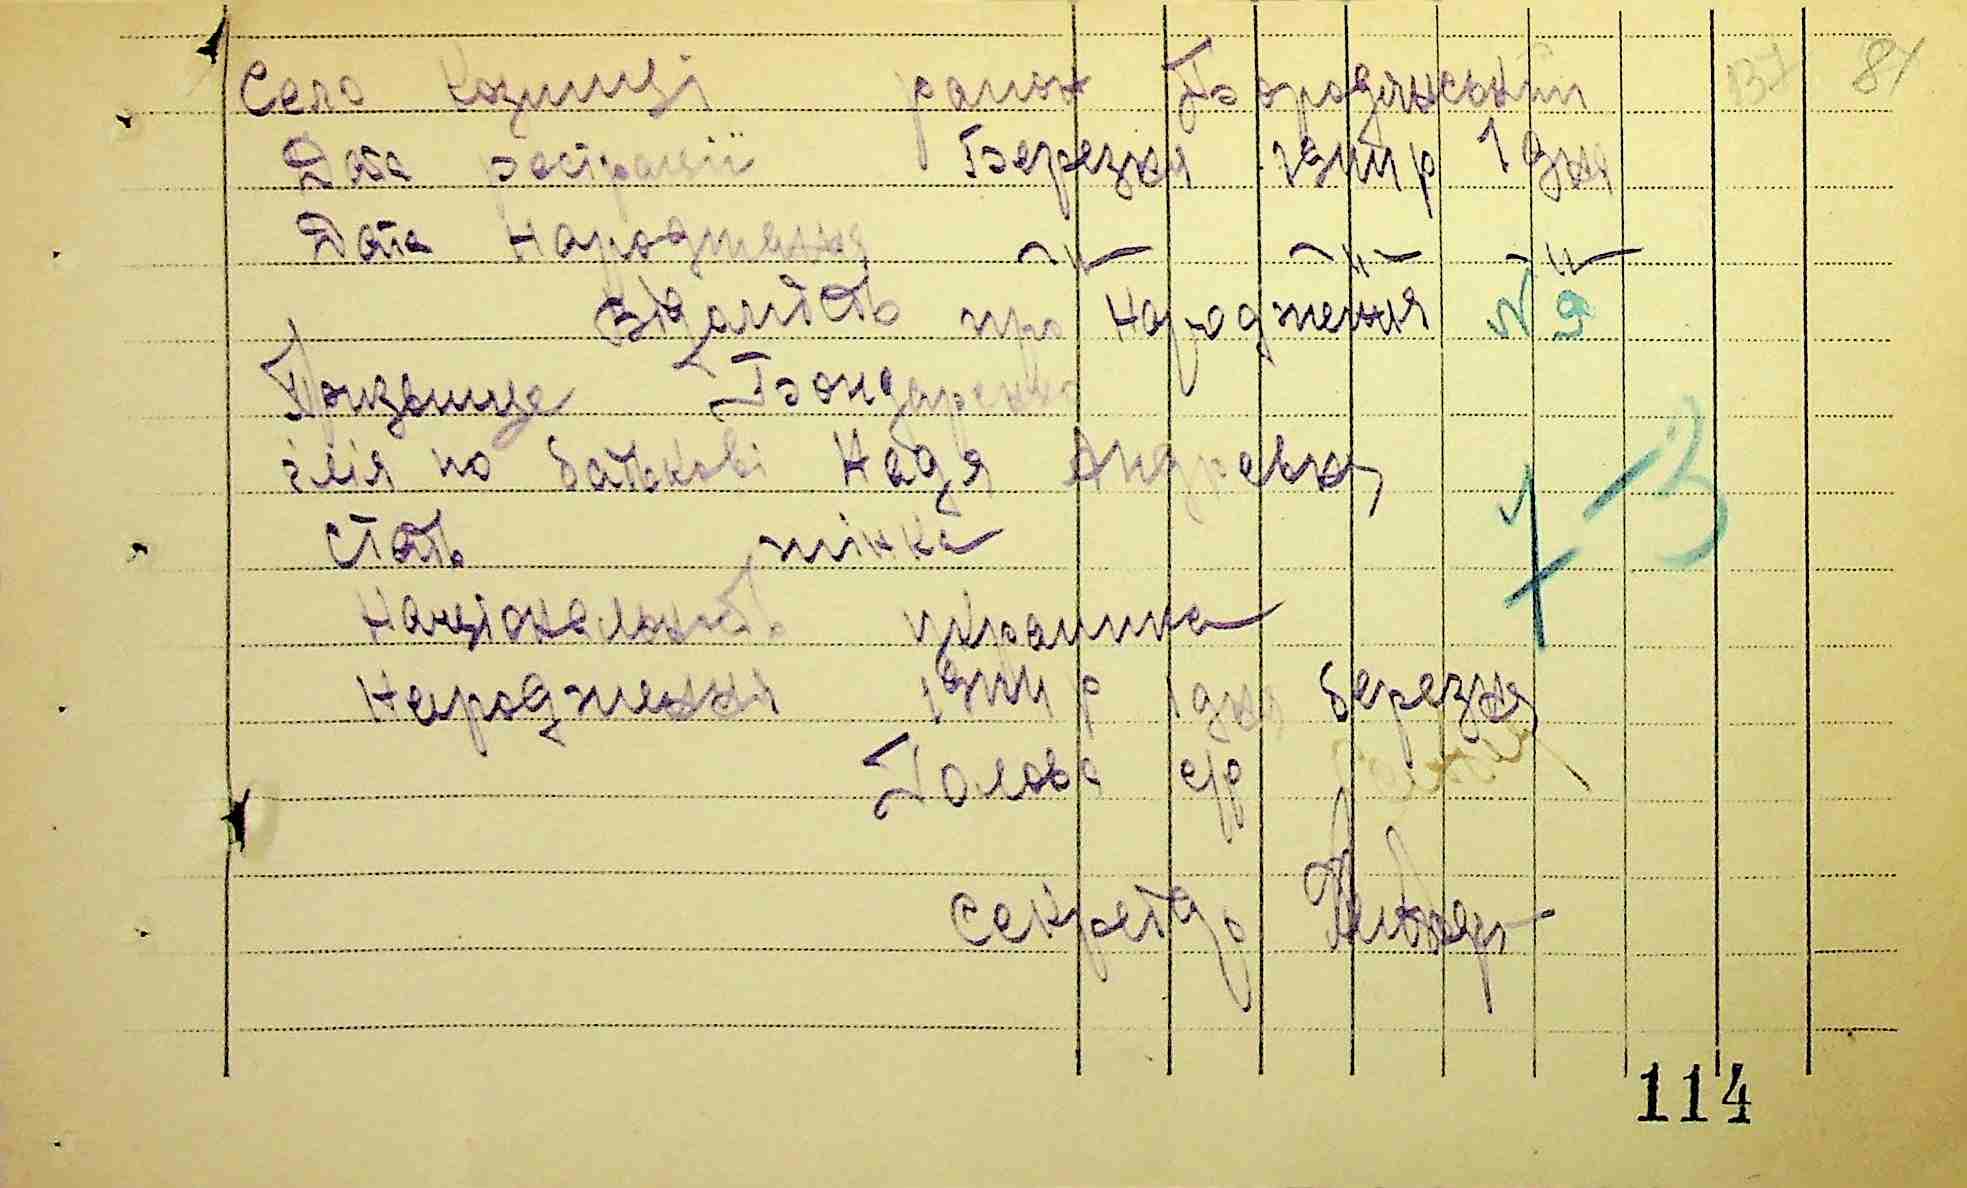 Село Козинці район Бородянський 137 81
Дата рєстрації Березня 1944 р 1 дня
Дата народження -"- -"- -"-
Відамість про народження № 9
Призвище Бондаренко
імія по батькові Надя Андревна
Стать жінка
Національність украинка
Народження 1944 р 1 дня березня
Голова с/р
Секретар
114